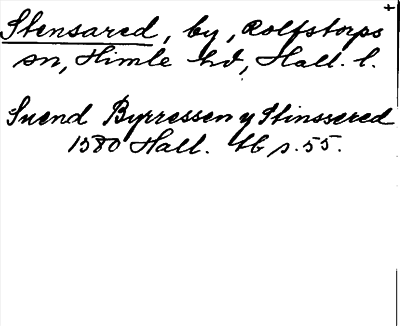 Stensared, by, Rolfstorps
sn, Himle hd, Hall. l.
Suend Byrressen y Stinssered
1580 Hall. tb s. 55.